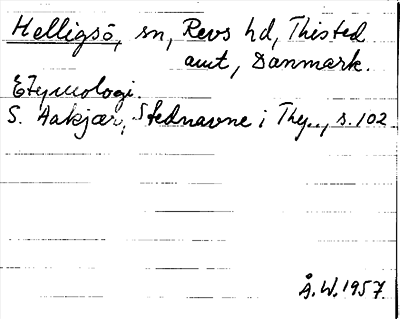 Helligsö, sn, Revs hd, Thisted
amt, Danmark.
Etymologi.
S. Aakjær, Stednavne i Thy.., s. 102
Å.W. 1957.